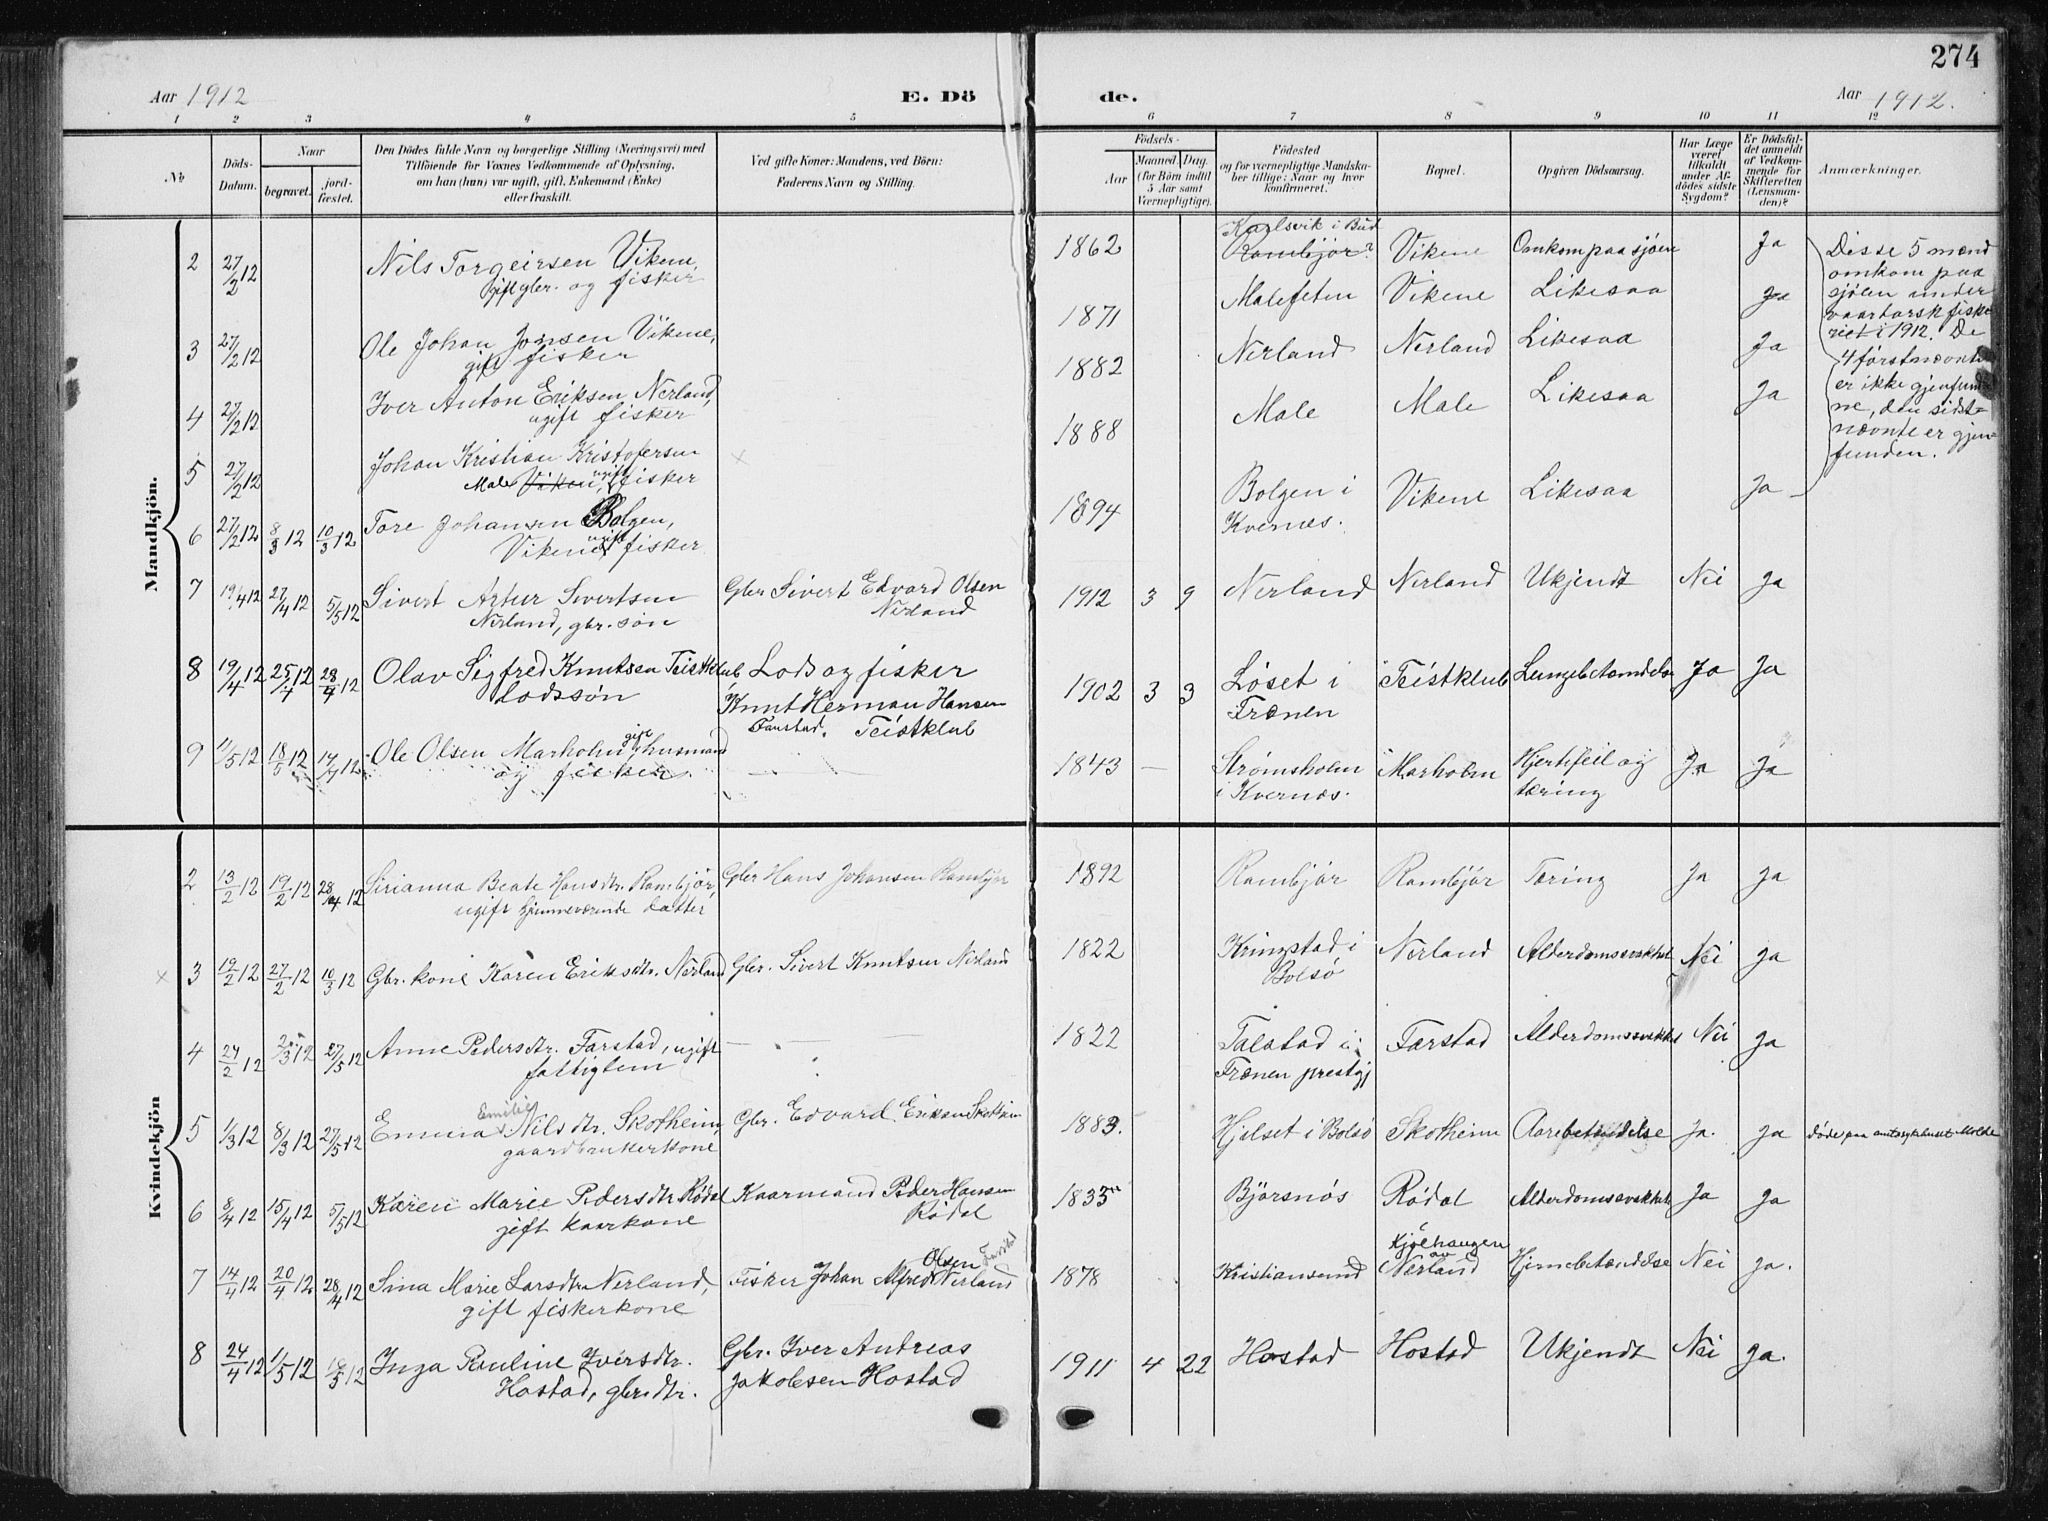 274
Aar 1912
E. Dö
de.
Aar 1912.
1 2 3 4 5 6 7 8 9 10 11 12
No
Döds-
Datum.
Naar
begravet.
jord-
fæstet.
Den Dödes fulde Navn og borgerlige Stilling (Næringsvei) med
Tilföiende for Voxnes Vedkommende af Oplysning,
om han (hun) var ugift, gift, Enkemand (Enke)
eller fraskilt.
Ved gifte Koner: Mandens, ved Börn:
Faderens Navn og Stilling.
Födsels-
Aar
Maaned. Dag.
(for Börn indtil
5 Aar samt
Værnepligtige).
Födested
og for værnepligtige Mandska-
ber tillige: Naar og hvor
konfirmeret.
Bopæl.
Opgiven Dödsaarsag.
Har Læge
været
tilkaldt
under Af-
dödes sidste
Sygdom?
Er Dödsfal-
det anmeldt
af Vedkom-
mende for
Skifteretten
(Lensman-
den)?
Anmærkninger.
Mandkjön.
2 27/2 12 Nils Torgeirsen Vikene, 1862 Karlsvik i Bud Vikene Omkom paa sjøen Ja
gift gbr. og fisker Rambjør?
3 27/2 12 Ole Johan Jonsen Vikene, 1871 Malefeten Vikene Likesaa Ja
gift fisker
4 27/2 12 Iver Anton Eriksen Nerland, 1882 Nerland Nerland Likesaa Ja
ugift fisker
5 27/2 12 Johan Kristian Kristofersen 1888 Male Male Likesaa Ja
Male Viken, ugift fisker
6 27/2 12 8/3 12 10/3 12 Tore Johansen Bolgen, 1894 Bolgen i Vikene Likesaa Ja
Vikene ugift fisker Kvernæs.
Disse 5 mænd
omkom paa
sjöen under
vaartorskfiske
riet i 1912. De
4 förstnævnte
er ikke gjenfund
ne, den sidst-
nævnte er gjen-
funden.
7 19/4 12 27/4 12 5/5 12 Sivert Artur Sivertsen Gbr Sivert Edvard Olsen 1912 3 9 Nerland Nerland Ukjendt Nei Ja
Nerland, gbr. søn Nerland
8 19/4 12 25/4 12 28/4 12 Olav Sigfred Knutsen Teistklub Lods og fisker 1902 3 3 Løset i Teistklub Lungebetændelse Ja Ja
lodssøn Knut Herman Hansen Frænen
Farstad. Teistklub
9 11/5 12 18/5 12 14/7 12 Ole Olsen Marholm gift husmand — — 1843 — Strømsholm Marholm Hjertefeil og Ja Ja
og fisker i Kvernæs. tæring
Kvindekjön
2 13/2 12 19/2 12 28/4 12 Sirianna Beate Hansdtr. Rambjør, Gbr Hans Johansen Rambjør 1892 Rambjør Rambjør Tæring Ja Ja
ugift hjemmeværende datter
3 19/2 12 27/2 12 10/3 12 Gbr. kone Karen Eriksdtr. Nerland Gbr. Sivert Knutsen Nerland 1822 Kringstad i Nerland Alderdomssvakhet Nei Ja
Bolsö
4 24/2 12 2/3 12 27/5 12 Anne Pedersdtr. Farstad, ugift — — — 1822 Talstad i Farstad Alderdomssvakhet Nei Ja
fattiglem Frænen prestgj
5 1/3 12 8/3 12 27/5 12 Emma Emilie Nilsdtr. Skotheim, Gbr. Edvard Eriksen Skotheim 1883. Hjelset i Bolsö Skotheim Aarebetændelse Ja. Ja døde paa amtssykehuset Molde
gaardbrukerkone
6 8/4 12 15/4 12 5/5 12 Karen Marie Pedersdtr Rödal Kaarmand Peder Hansen 1835 Björsnös Rödal Alderdomssvakhet Ja Ja
gift kaarkone Rödal
7 14/4 12 20/4 12 28/4 12 Sina Marie Larsdtr Nerland, Fisker Johan Alfred Olsen Nerland Farstad 1878 Kristiansund Kjølhaugen av Nerland Hjernebetændelse Nei Ja.
gift fiskerkone
8 24/4 12 1/5 12 18/5 12 Inga Pauline Iversdtr. Gbr. Iver Andreas 1911 4 22 Hostad Hostad Ukjendt Nei Ja.
Hostad, gbr.dtr. Jakobsen Hostad